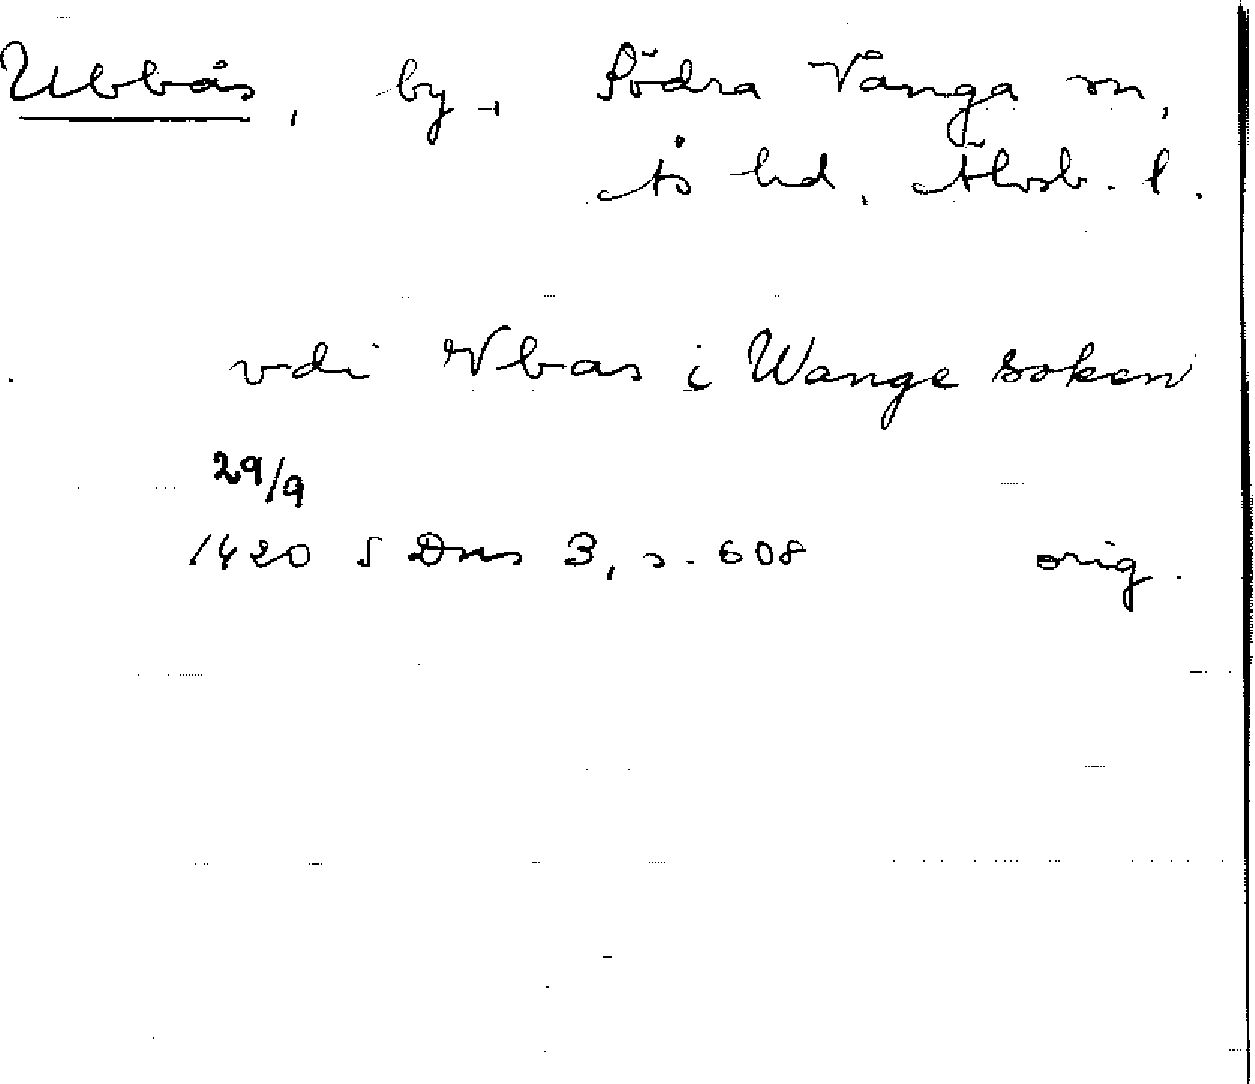 Ubbås, by, Södra Vånga sn,
Ås hd, Älvsb. l.
vdi Vbas i Wange soken
29/9
1420 SDns 3, s. 608 orig.